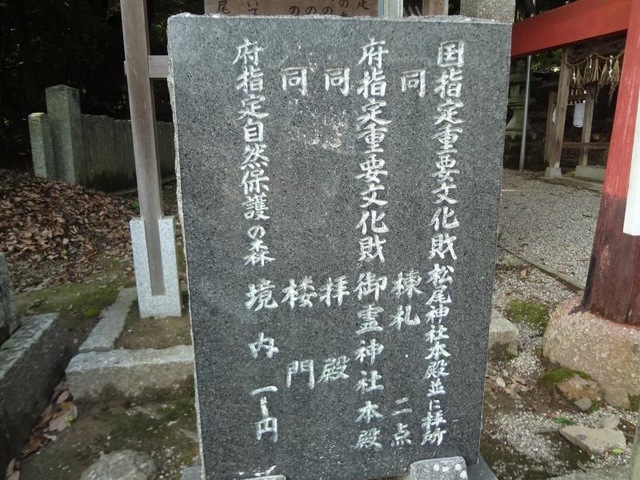 国指定重要文化財 松尾神社本殿並に拝所
同 棟札 二点
府指定重要文化財 御霊神社本殿
同 拝殿
同 楼門
府指定自然保護の森 境内一円